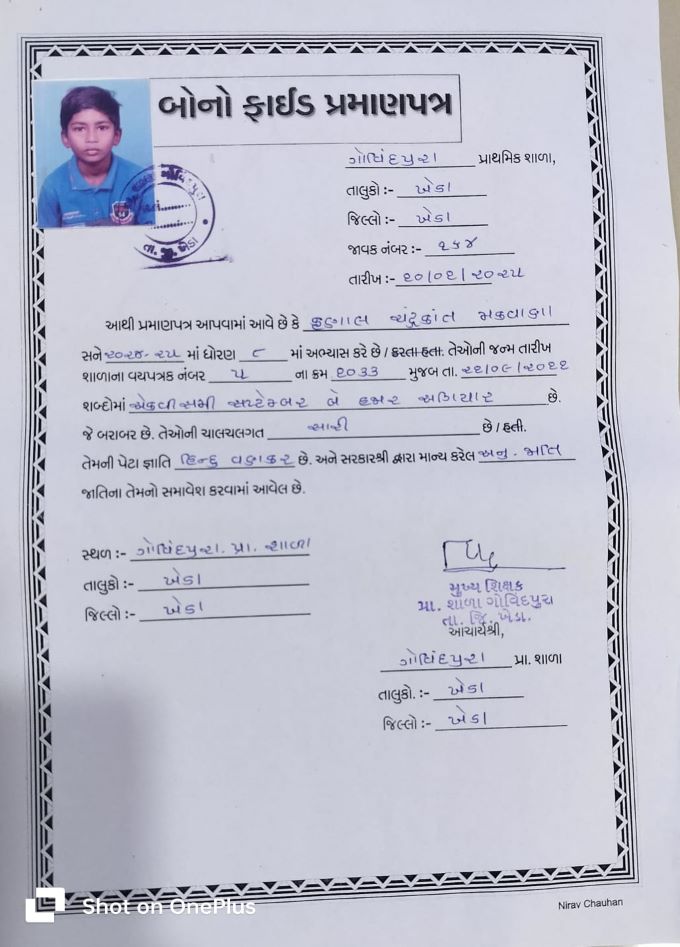 બોનો ફાઈડ પ્રમાણપત્ર
ગોવિંદપુરા પ્રાથમિક શાળા,
તાલુકો :- ખેડા
જિલ્લો :- ખેડા
જાવક નંબર :-
તારીખ :- ૨૦/૦૨/૨૦૨૫
તા. જી. ખેડા
આથી પ્રમાણપત્ર આપવામાં આવે છે કે કુણાલ ચંદ્રકાંત મકવાણા
સને ૨૦૨૪-૨૫ માં ધોરણ ૮ માં અભ્યાસ કરે છે / કરતા હતા. તેઓની જન્મ તારીખ
શાળાના વયપત્રક નંબર ૫ ના ક્રમ ૨૦૩૩ મુજબ તા.
શબ્દોમાં એકવીસમી સપ્ટેમ્બર બે હજાર અગિયાર છે.
જે બરાબર છે. તેઓની ચાલચલગત સારી છે / હતી.
તેમની પેટા જ્ઞાતિ હિન્દુ વણકર છે. અને સરકારશ્રી દ્વારા માન્ય કરેલ અનુ. જાતિ
જાતિના તેમનો સમાવેશ કરવામાં આવેલ છે.
સ્થળ :- ગોવિંદપુરા. પ્રા. શાળા
તાલુકો :- ખેડા
જિલ્લો :- ખેડા
મુખ્ય શિક્ષક
પ્રા. શાળા ગોવિંદપુરા
તા. જિ. ખેડા.
આચાર્યશ્રી,
ગોવિંદપુરા પ્રા. શાળા
તાલુકો. :- ખેડા
જિલ્લો :- ખેડા
Nirav Chauhan
Shot on OnePlus